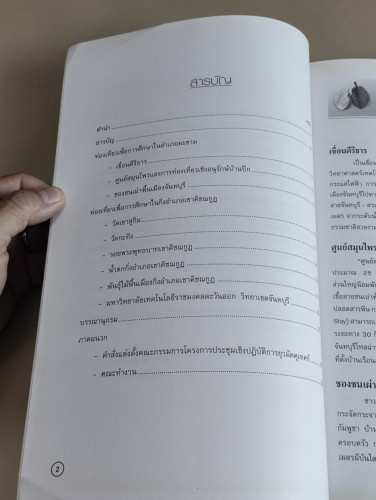 สารบัญ
คำนำ
สารบัญ
ท่องเที่ยวเพื่อการศึกษาในอำเภอมะขาม
- เขื่อนคีรีธาร
- ศูนย์สมุนไพรและการท่องเที่ยวเชิงอนุรักษ์บ้านปึก
- ชองชนเผ่าพื้นเมืองจันทบุรี
ท่องเที่ยวเพื่อการศึกษาในกิ่งอำเภอเขาคิชฌกูฏ
- วัดเขาสุกิม
- วัดกะทิง
- รอยพระพุทธบาทเขาคิชฌกูฏ
- น้ำตกกิ่งอำเภอเขาคิชฌกูฏ
- พันธุ์ไม้พื้นเมืองกิ่งอำเภอเขาคิชฌกูฏ
- มหาวิทยาลัยเทคโนโลยีราชมงคลตะวันออก วิทยาเขตจันทบุรี
บรรณานุกรม
ภาคผนวก
- คำสั่งแต่งตั้งคณะกรรมการโครงการประชุมเชิงปฏิบัติการยุวมัคคุเทศก์
- คณะทำงาน
2
เขื่อนคีรีธาร
เป็นเขื่อน
วิทยาศาสตร์เทคโ
กระแสไฟฟ้า การ
เมืองจันทบุรีไปทา
ธรรมชาติสวยงาม
ศูนย์สมุนไพร
"ศูนย์ส
ประมาณ 25
ส่วนใหญ่นิยมพัก
เชื้อสายชนเผ่าที่
ปลอดสารพิษ ก
Stay) สามารถเ
ระยะทาง 30 กิ
จันทบุรีไหลผ่า
ที่ตั้งบ้านเรือน
ชองชนเผ่า
ชาว
กระจัดกระจา
กัมพูชา บ้าน
ครอบครัว ก
เมตรมีบันได